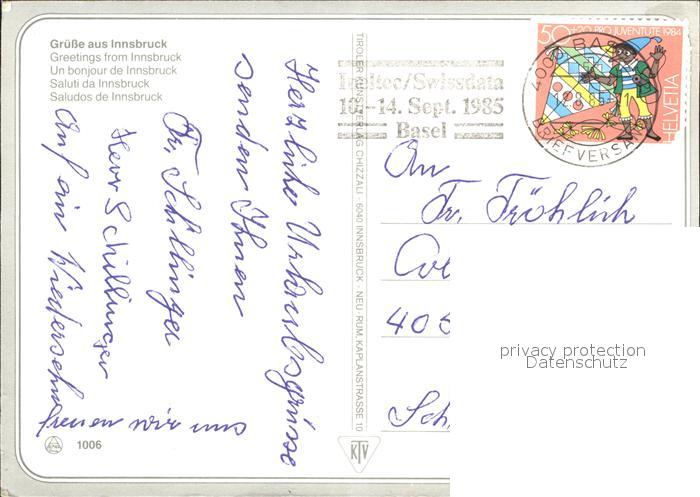 Grüße aus Innsbruck
Greetings from Innsbruck
Un bonjour de Innsbruck
Saluti da Innsbruck
Saludos de Innsbruck
Herzliche Urlaubsgrüsse
senden Ihnen
Fr. Schillinger
Herr Schillinger
Auf ein Wiedersehn
freuen wir uns
1006
TIROLER KUNSTVERLAG CHIZZALI · 6040 INNSBRUCK · NEU-RUM, KAPLANSTRASSE 10
KTV
/Swissdata
10.-14. Sept. 1985
Basel
50+20 PRO JUVENTUTE 1984
HELVETIA
4000 BASEL
BRIEFVERSAND
An
Fr. Fröhlich
405
Sch
privacy protection
Datenschutz